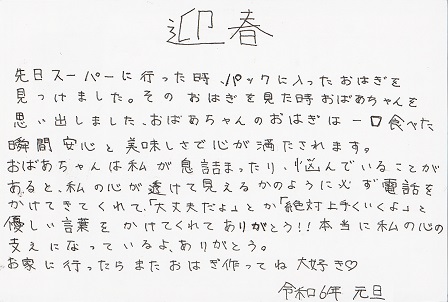 迎春
先日スーパーに行った時、パックに入ったおはぎを
見つけました。そのおはぎを見た時おばあちゃんを
思い出しました、おばあちゃんのおはぎは一口食べた
瞬間安心と美味しさで心が満たされます。
おばあちゃんは私が息詰まったり、悩んでいることが
あると、私の心が透けて見えるかのように必ず電話を
かけてきてくれて、「大丈夫だよ」とか「絶対上手くいくよ」と
優しい言葉をかけてくれてありがとう!!本当に私の心の
支えになっているよ、ありがとう。
お家に行ったらまたおはぎ作ってね 大好き♡
令和6年 元旦